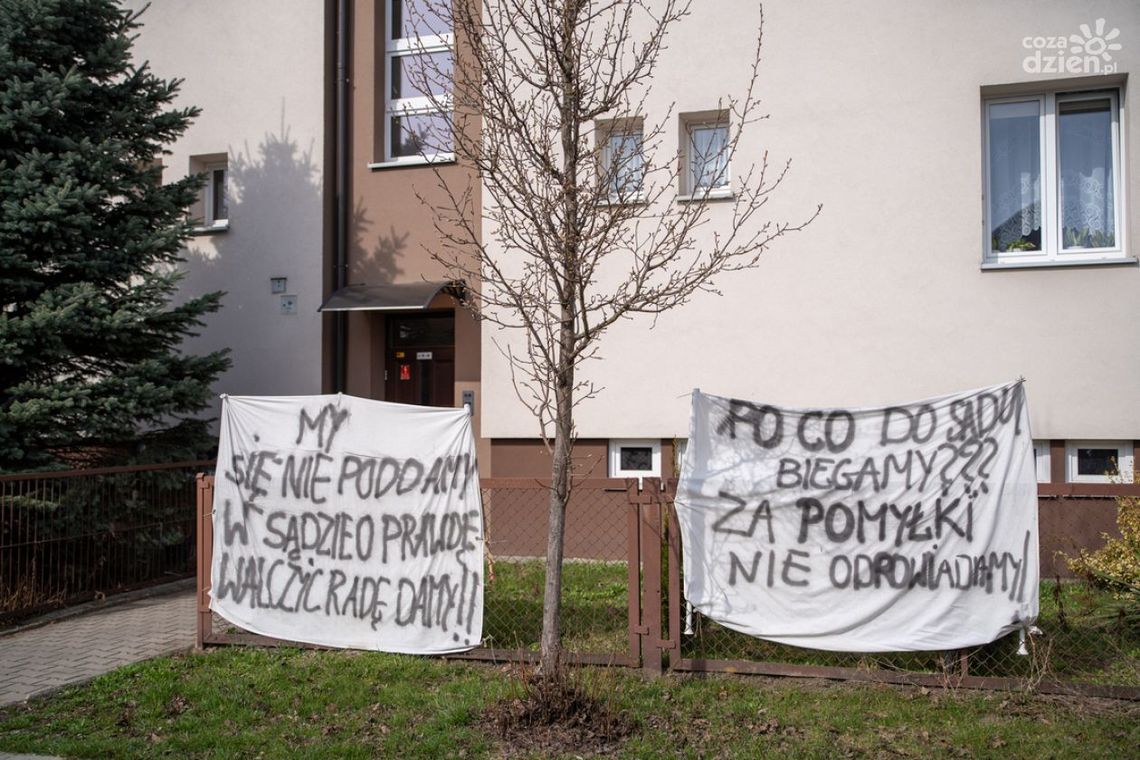 coza
dzień.pl
MY
SIĘ NIE PODDAMY
W SĄDZIE O PRAWDĘ
WALCZYĆ RADĘ DAMY!!
PO CO DO SĄDU
BIEGAMY???
ZA POMYŁKI
NIE ODPOWIADAMY!